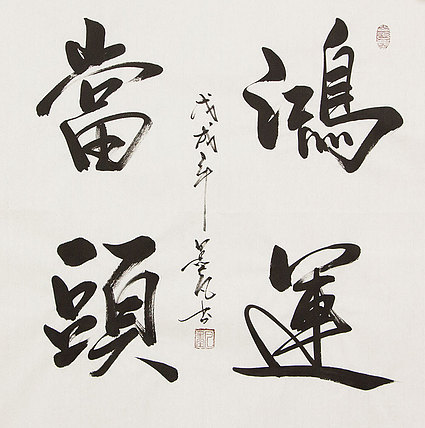 鴻運
當頭
戊戌年